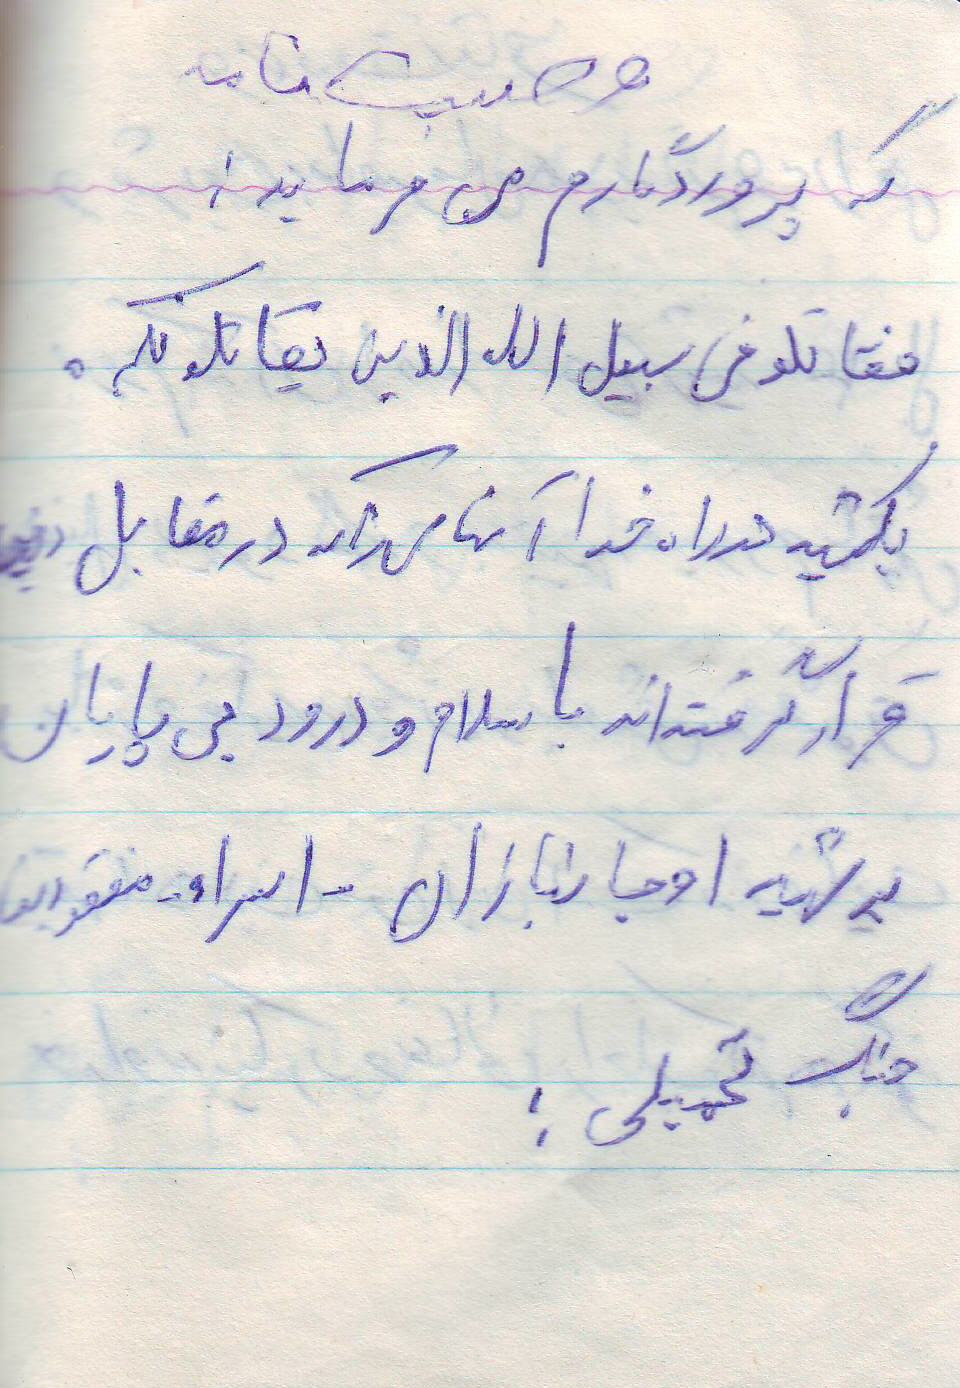 وصیت نامه
که پروردگارم می فرماید:
فقاتلو فی سبیل الله الذین یقاتلونکم.
بکشید در راه خدا آنهای را که در مقابل
قرار گرفته‌اند با سلام و درود بی پایان
بر شهید اوجانبازان - اسراء - مفقودین
جنگ تحمیلی: